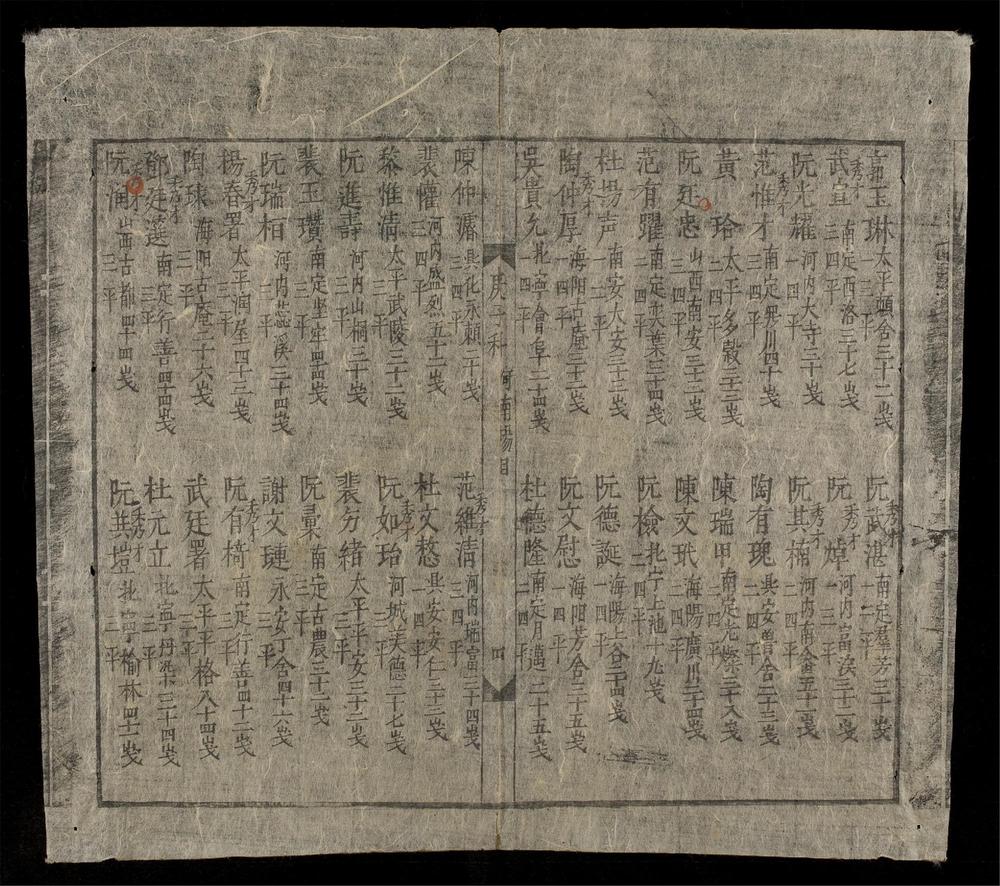 郭玉琳 太平頭舍三十二歲 一三平
武宣 秀才 南定西洛三十七歲 三四平
阮光耀 河內大寺三十歲 一四平
范惟才 秀才 南定 川四十歲 三四平
黃珞 太平多穀三十三歲 二四平
阮廷忠 山西南安三十三歲 三四平
范有躍 南定 葉三十四歲 二四平
杜揚声 南安大安三十三歲 一三平
陶仲厚 秀才 海陽古庵三十三歲 一四平
吳貴允 北寧會阜二十四歲 一四平
阮武湛 秀才 南定羣芳三十一歲 一二平
阮焯 秀才 河內富 三十二歲 三平
阮其楠 秀才 河內南 五十一歲 二四平
陶有瑰 具安曾舍二十三歲 三四平
陳瑞甲 南定光 二十八歲 二四平
陳文珉 海陽廣川三十四歲 二四平
阮檢 北宁上池十九歲 二四平
阮德誕 海陽上谷三十四歲 一四平
阮文慰 海陽芳舍三十五歲 一四平
杜德隆 南定月 二十五歲 二四
庚子科 河南場目 四
陳仲 興化永賴二十歲 三四平
裴懽 河內盛烈五十二歲 一三平
黎惟清 太平武陵三十二歲 三平
阮進壽 河內山桐三十歲 三平
裴玉瓚 南定坚牢四十四歲 三平
阮瑞栢 河內蕊溪三十四歲 三平
楊春署 秀才 太平润屋四十三歲 三平
陶珠 海陽古庵二十六歲 三平
鄧廷選 秀才 南定行善四十四歲 三平
阮 秀才 山西古都四十四歲 三平
范維清 秀才 河內瑞富二十四歲 三四平
杜文愗 具安安仁三十三歲 一四平
阮如珆 秀才 河城芙德二十七歲 三平
裴分緒 太平平安三十二歲 三平
阮彙 南定古農三十二歲 三平
謝文璉 永安丁舍四十六歲 三平
阮有椅 秀才 南定行善四十二歲 三平
武廷署 太平平格八十四歲 三平
杜元立 北寧丹染三十四歲 三平
阮共塏 秀才 北寧榆林四十二歲 三平